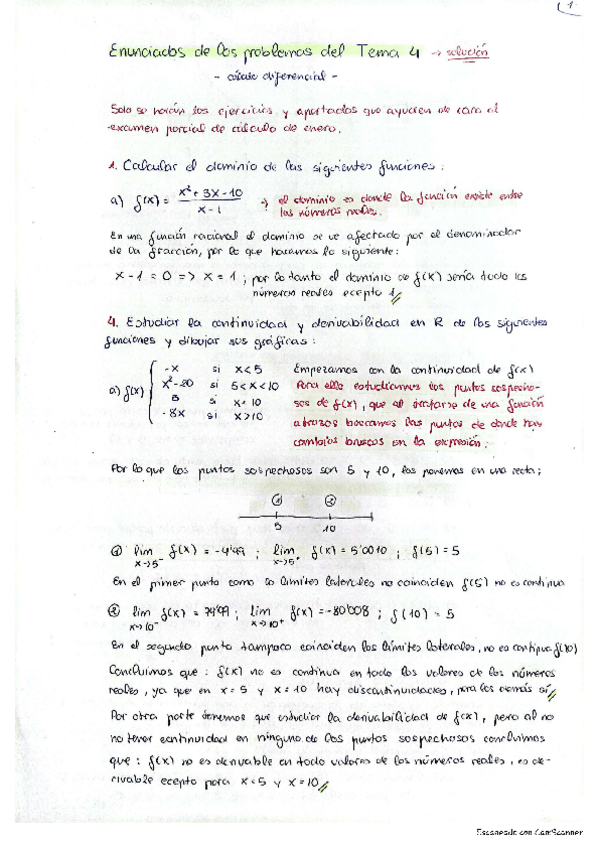 1
Enunciados de los problemas del Tema 4 → solución
- cálculo diferencial -
Solo se harán los ejercicios y apartados que ayuden de cara al
examen parcial de cálculo de enero.
1. Calcular el dominio de las siguientes funciones:
a) f(x) = (x² + 3x - 10) / (x - 1) → el dominio es donde la función existe entre
los números reales.
En una función racional el dominio se ve afectado por el denominador
de la fracción, por lo que hacemos lo siguiente:
x - 1 = 0 => x = 1 ; por lo tanto el dominio de f(x) sería todo los
números reales ecepto 1 //
4. Estudiar la continuidad y derivabilidad en R de las siguientes
funciones y dibujar sus gráficas:
a) f(x) {
-x si x < 5
x² - 20 si 5 < x < 10
5 si x = 10
-8x si x > 10
Empezamos con la continuidad de f(x)
Para ello estudiamos los puntos sospecho-
sos de f(x), que al tratarse de una función
a trozos buscamos los puntos de donde hay
cambios bruscos en la expresión:
Por lo que los puntos sospechosos son 5 y 10, los ponemos en una recta;
① ②
5 10
① lim x→5⁻ f(x) = -4'99 ; lim x→5⁺ f(x) = 5'0010 ; f(5) = 5
En el primer punto como los límites laterales no coinciden f(5) no es continua
② lim x→10⁻ f(x) = 79'99 ; lim x→10⁺ f(x) = -80'008 ; f(10) = 5
En el segundo punto tampoco coinciden los límites laterales, no es continua f(10)
Concluimos que : f(x) no es continua en todo los valores de los números
reales, ya que en x = 5 y x = 10 hay discontinuidades, para los demás sí //
Por otra parte tenemos que estudiar la derivabilidad de f(x), pero al no
no tener continuidad en ninguno de los puntos sospechosos concluimos
que : f(x) no es derivable en todo valores de los números reales, es de-
rivable ecepto para x = 5 y x = 10 //
Escaneado con CamScanner